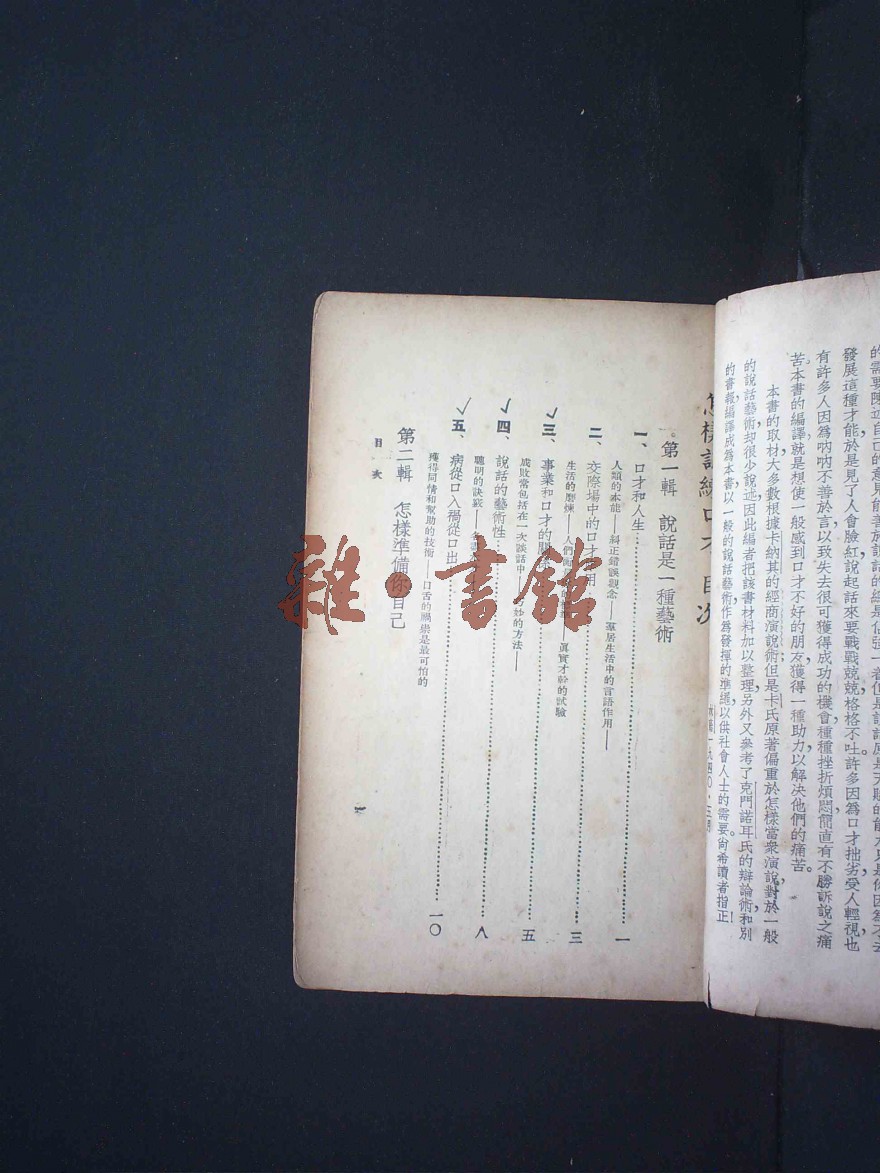 的需要陳述自己的意見能善於說話的總是佔強一着但是說話原是天賦的能力只是你因為不去
發展這種才能於是見了人會臉紅說起話來要戰戰兢兢格格不吐許多因為口才拙劣受人輕視也
有許多人因為吶吶不善於言以致失去很可獲得成功的機會種種挫折煩悶簡直有不勝訴說之痛
苦本書的編譯就是想使一般感到口才不好的朋友獲得一種助力以解決他們的痛苦。
本書的取材大多數根據卡納其的經商演說術但是卡氏原著偏重於怎樣當衆演說對於一般
的說話藝術却很少說述因此編者把該書材料加以整理另外又參考了克門諾耳氏的辯論術和別
的書報編譯成為本書以一般的說話藝術作為發揮的準繩以供社會人士的需要尙希讀者指正！
一九四〇・三月
怎樣訓練口才目次
第一輯 說話是一種藝術
一、口才和人生……一
人類的本能——糾正錯誤觀念——羣居生活中的言語作用——
二、交際場中的口才 用……三
生活的磨煉——人們 的 ——眞實才幹的試驗
三、事業和口才的關係……五
成敗常包括在一次談話中—— 妙的方法——
四、說話的藝術性……八
聰明的訣竅——
五、病從口入禍從口出……一〇
獲得同情和幫助的技術——口舌的禍祟是最可怕的
第二輯 怎樣準備你自己
目次
一
雜・書館